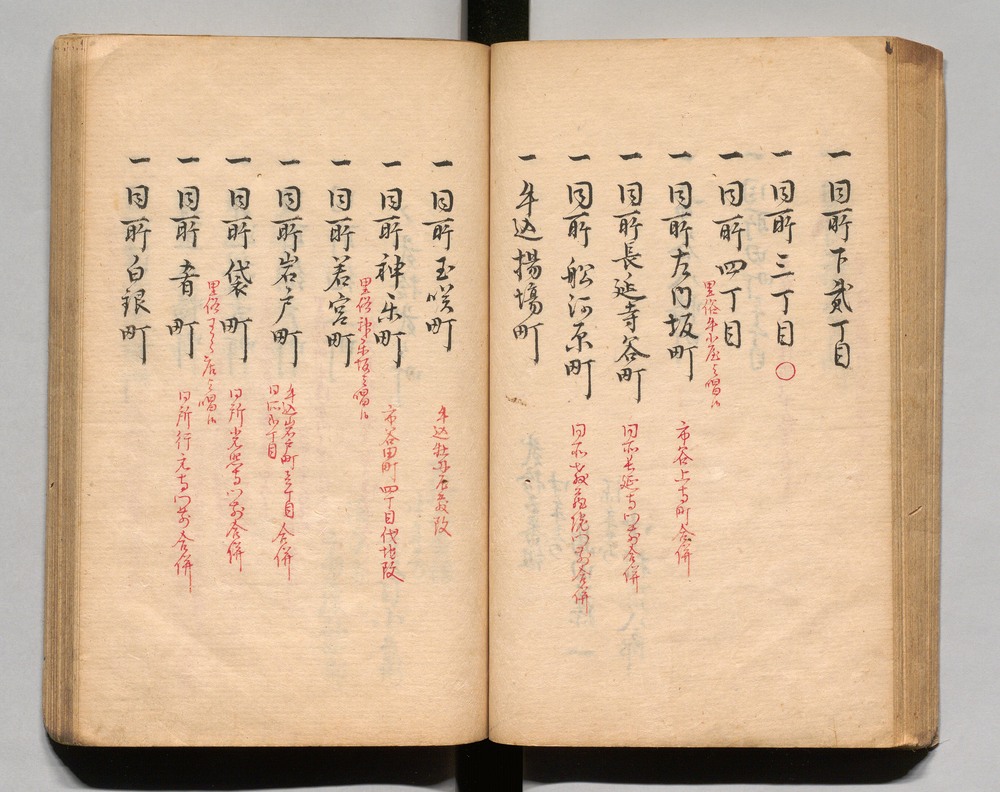 一 同所下貳丁目
一 同所三丁目 ○
一 同所四丁目
里俗牛小屋と唱候
一 同所左門坂町
市谷上寺町合併
一 同所長延寺谷町
同所長延寺門前合併
一 同所船河原町
同所教蔵院門前合併
一 牛込揚場町
一 同所玉咲町
牛込牡丹店茂改
一 同所神楽町
市谷田町四丁目代地改
里俗神楽坂と唱候
一 同所若宮町
一 同所岩戸町
牛込岩戸町壱丁目合併
同所弐丁目
一 同所袋町
同所光照寺門前合併
里俗 店と唱候
一 同所肴町
同所行元寺門前合併
一 同所白銀町